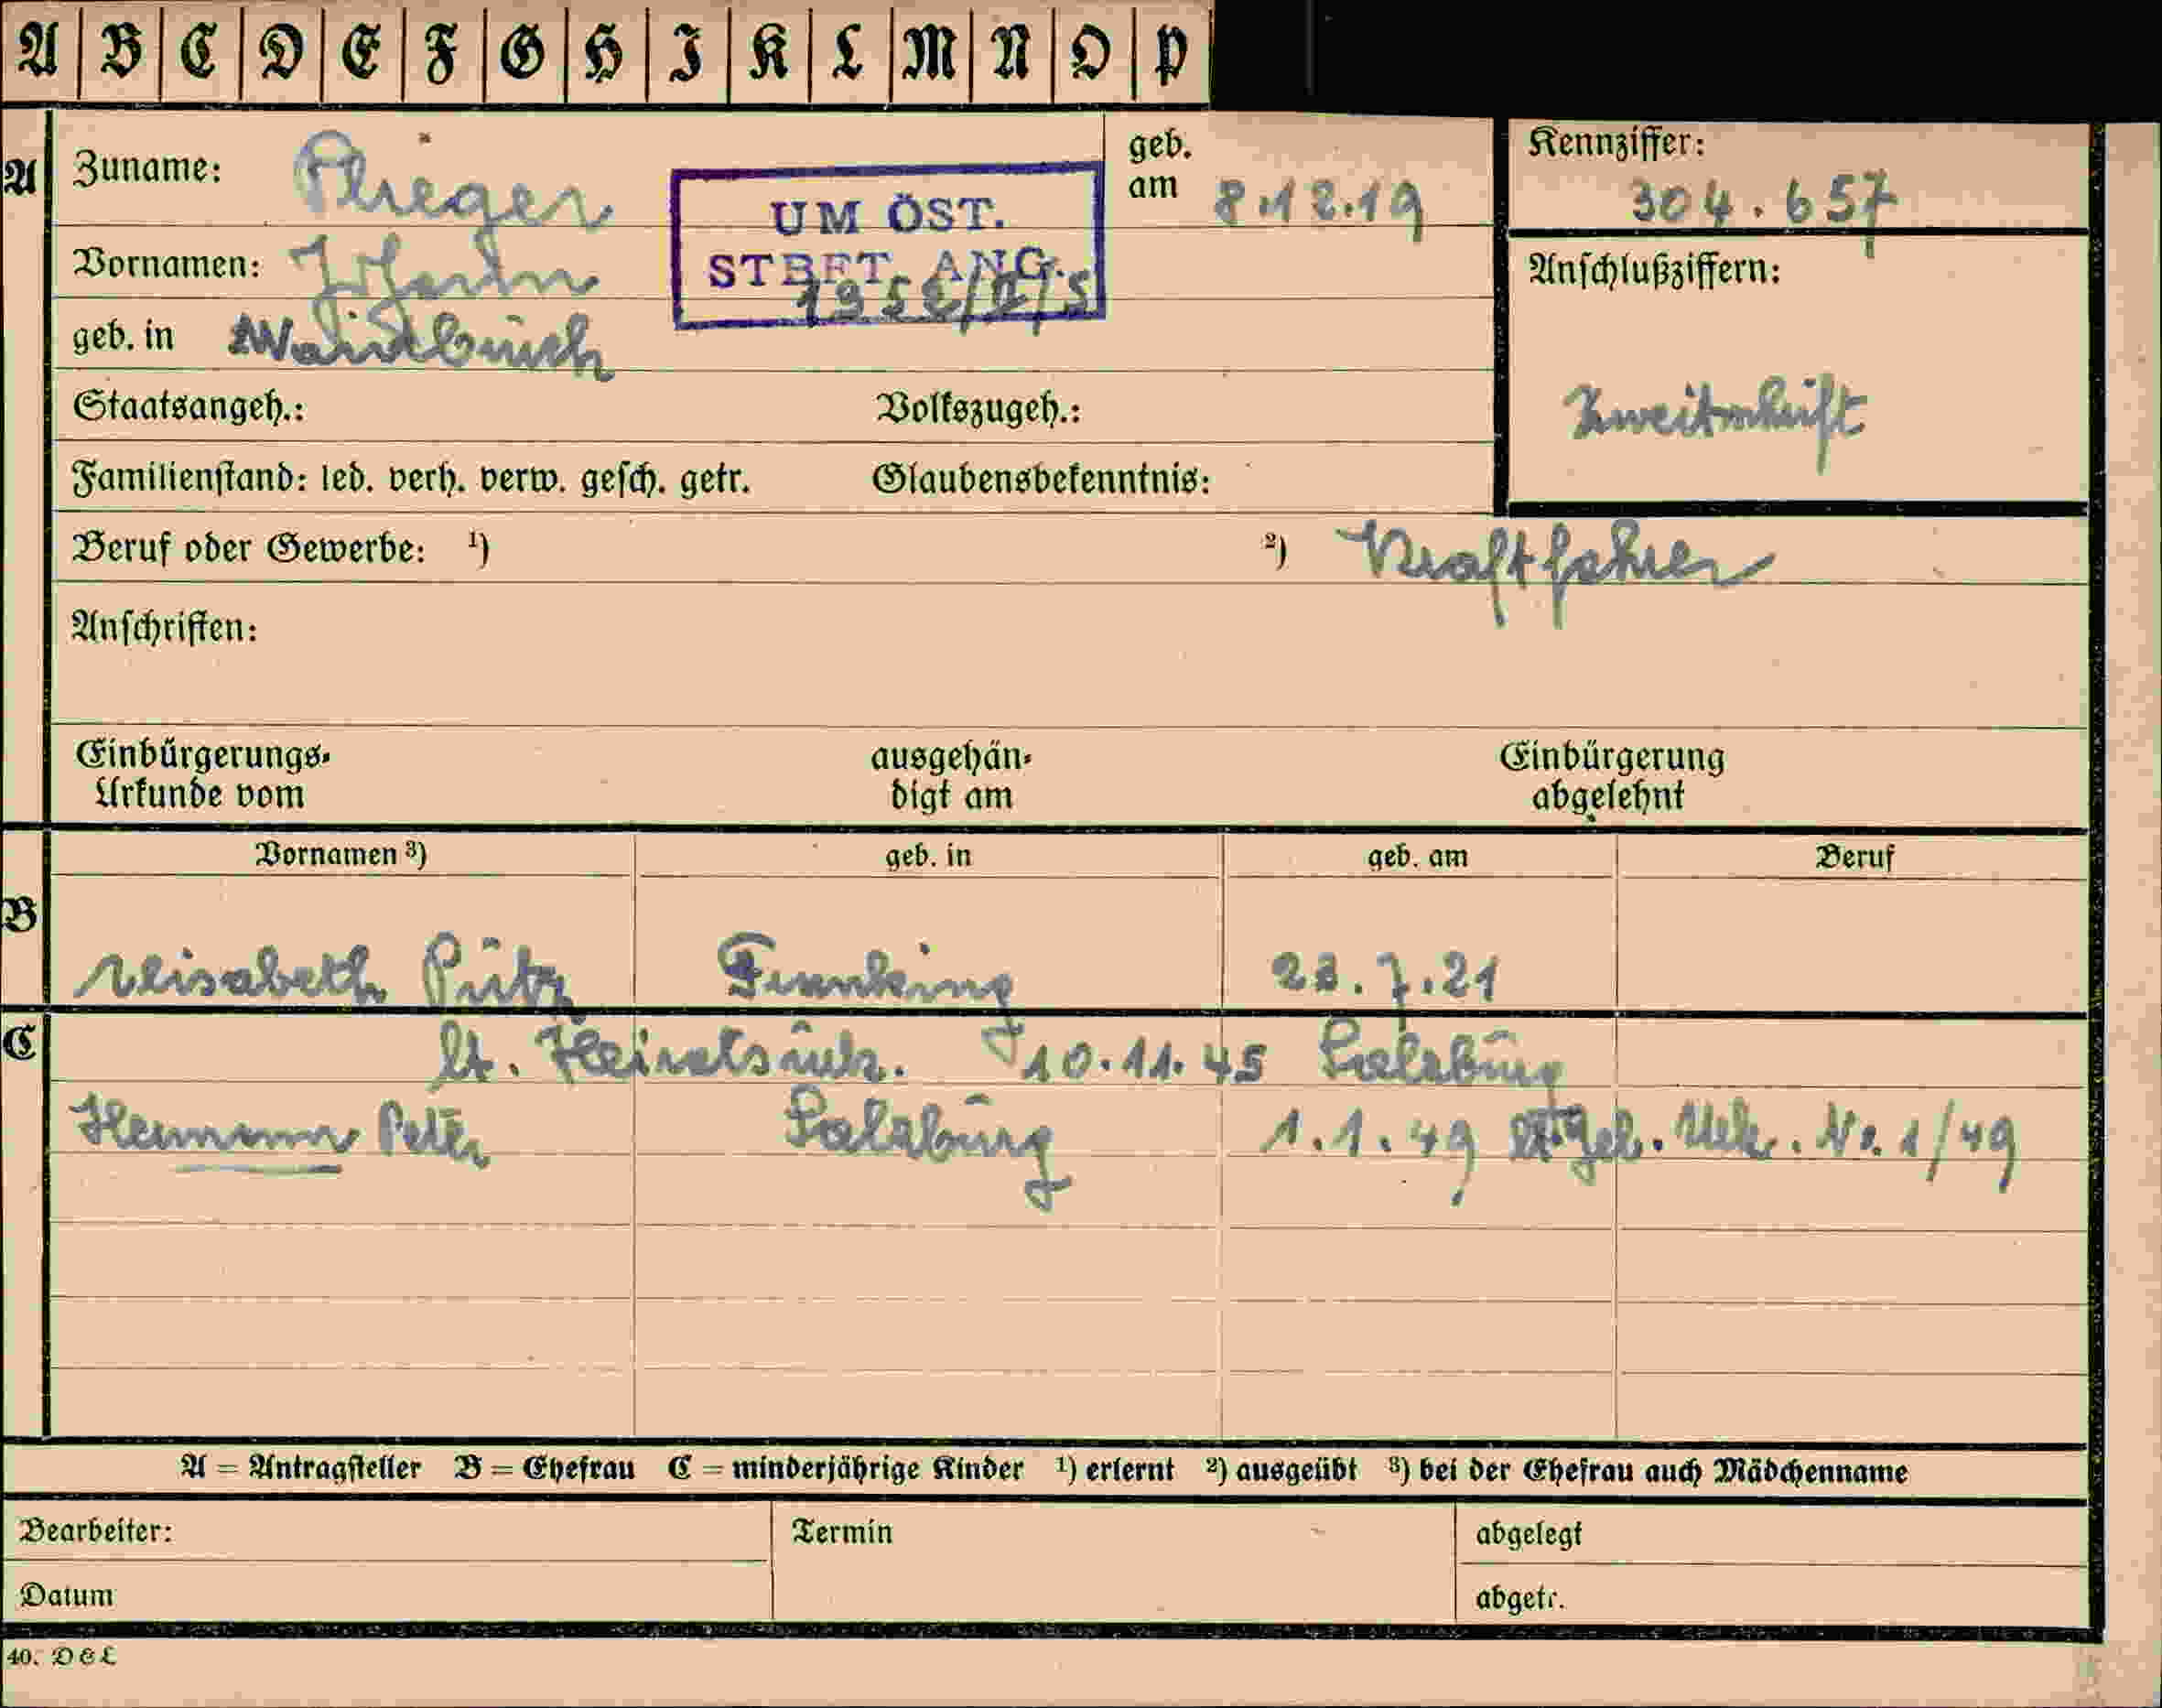 A B C D E F G H I K L M N O P
A Zuname: Plieger geb. am 8.12.19 Kennziffer: 304.657
UM ÖST.
STBFT. ANG.
Vornamen: Johann Anschlußziffern:
1952/II/5
geb. in Waidbruck
Zweitschrift
Staatsangeh.: Volkszugeh.:
Familienstand: led. verh. verw. gesch. getr. Glaubensbekenntnis:
Beruf oder Gewerbe: ¹) ²) Kraftfahrer
Anschriften:
Einbürgerungs- ausgehän- Einbürgerung
Urkunde vom digt am abgelehnt
Vornamen ³) geb. in geb. am Beruf
B
Elisabeth Pütz 23.7.21
C lt. Heiratsurk. 10.11.45 Salzburg
Hermann Peter Salzburg 1.1.49 lt. Geb. Urk. Nr. 1/49
A = Antragsteller B = Ehefrau C = minderjährige Kinder ¹) erlernt ²) ausgeübt ³) bei der Ehefrau auch Mädchenname
Bearbeiter: Termin abgelegt
Datum abgetr.
40. D&L